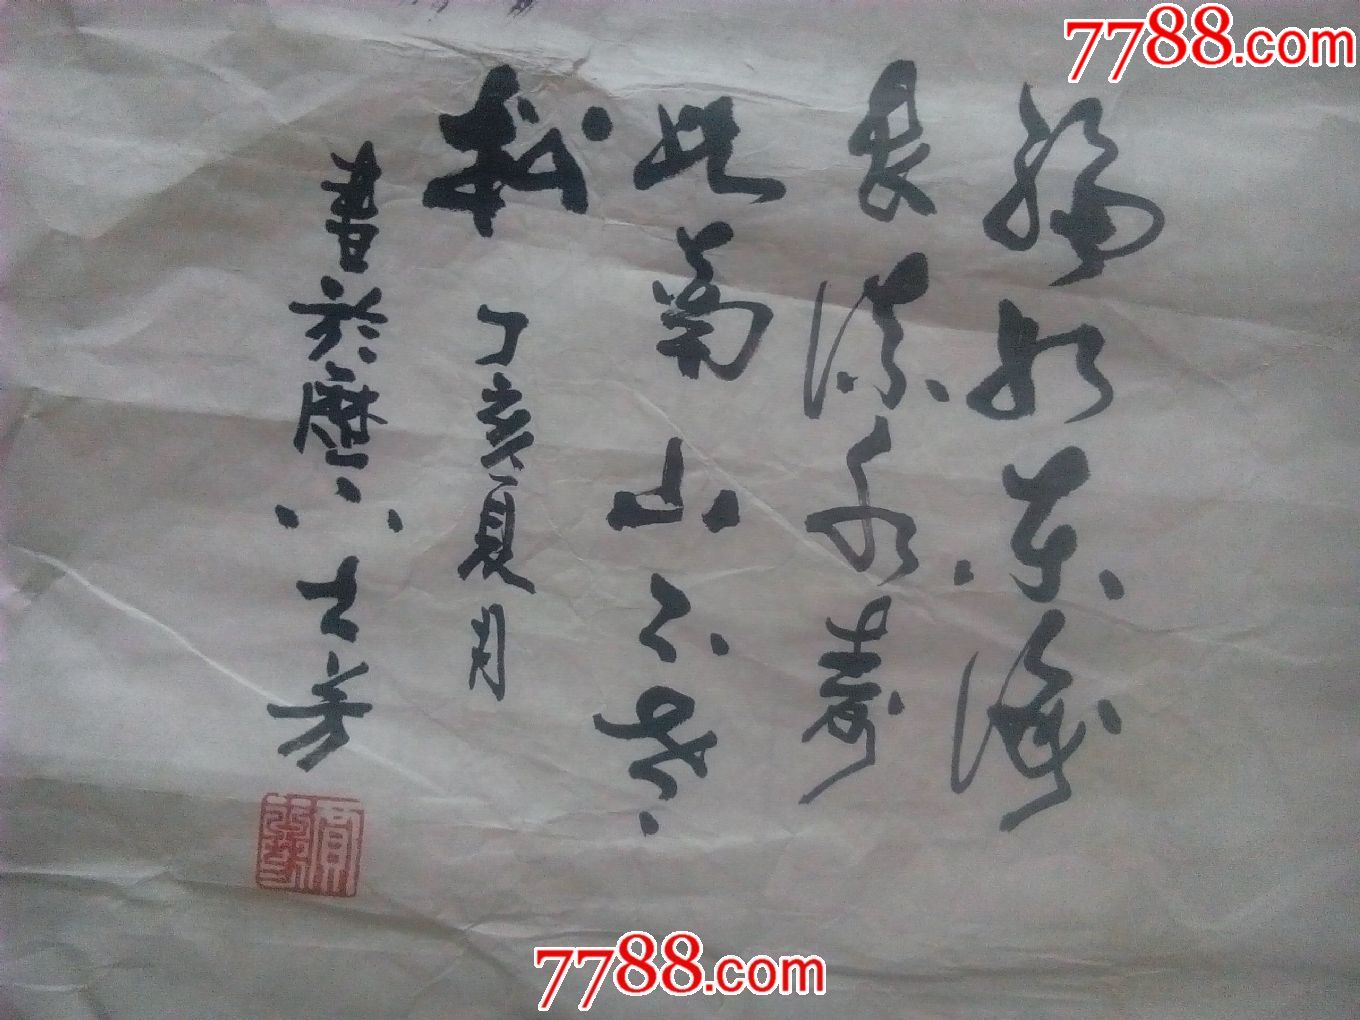 7788.com
福如东海
長流水壽
比南山不老
松 丁亥夏月
書於歷下士芳
7788.com